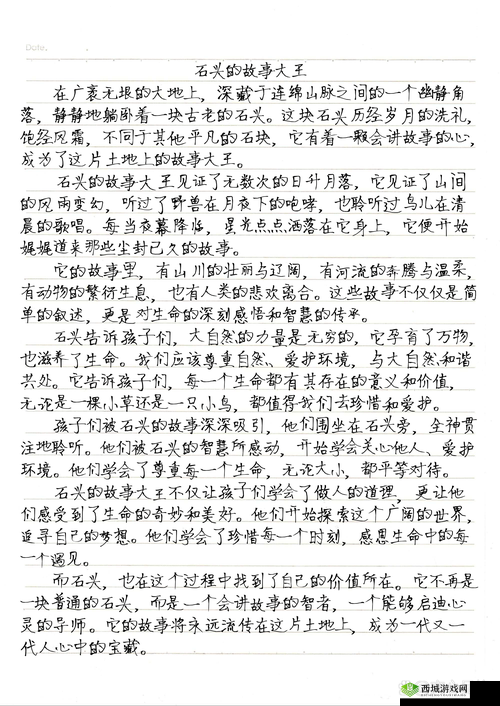 Date.
石兴的故事大王
在广袤无垠的大地上，深藏于连绵山脉之间的一个幽静角
落，静静地躺卧着一块古老的石兴。这块石头历经岁月的洗礼，
饱经风霜，不同于其他平凡的石块，它有着一颗会讲故事的心，
成为了这片土地上的故事大王。
石兴的故事大王见证了无数次的日升月落，它见证了山间
的风雨变幻，听过了野兽在月夜下的咆哮，也聆听过鸟儿在清
晨的歌唱。每当夜幕降临，星光点点洒落在它身上，它便开始
娓娓道来那些尘封已久的故事。
它的故事里，有山川的壮丽与辽阔，有河流的奔腾与温柔，
有动物的繁衍生息，也有人类的悲欢离合。这些故事不仅仅是简
单的叙述，更是对生命的深刻感悟和智慧的传承。
石兴告诉孩子们，大自然的力量是无穷的，它孕育了万物，
也滋养了生命。我们应该尊重自然、爱护环境，与大自然和谐
共处。它告诉孩子们，每一个生命都有其存在的意义和价值，
无论是一棵小草还是一只小鸟，都值得我们去珍惜和爱护。
孩子们被石兴的故事深深吸引，他们围坐在石兴旁，全神贯
注地聆听。他们被石兴的智慧所感动，开始学会关心他人、爱护
环境。他们学会了尊重每一个生命，无论大小，都平等对待。
石兴的故事大王不仅让孩子们学会了做人的道理，更让他
们感受到了生命的奇妙和美好。他们开始探索这个广阔的世界，
追寻自己的梦想。他们学会了珍惜每一个时刻，感恩生命中的每
一个遇见。
而石兴，也在这个过程中找到了自己的价值所在。它不再是
一块普通的石兴，而是一个会讲故事的智者，一个能够启迪心
灵的导师。它的故事将永远流传在这片土地上，成为一代又一
代人心中的宝藏。
西城游戏网